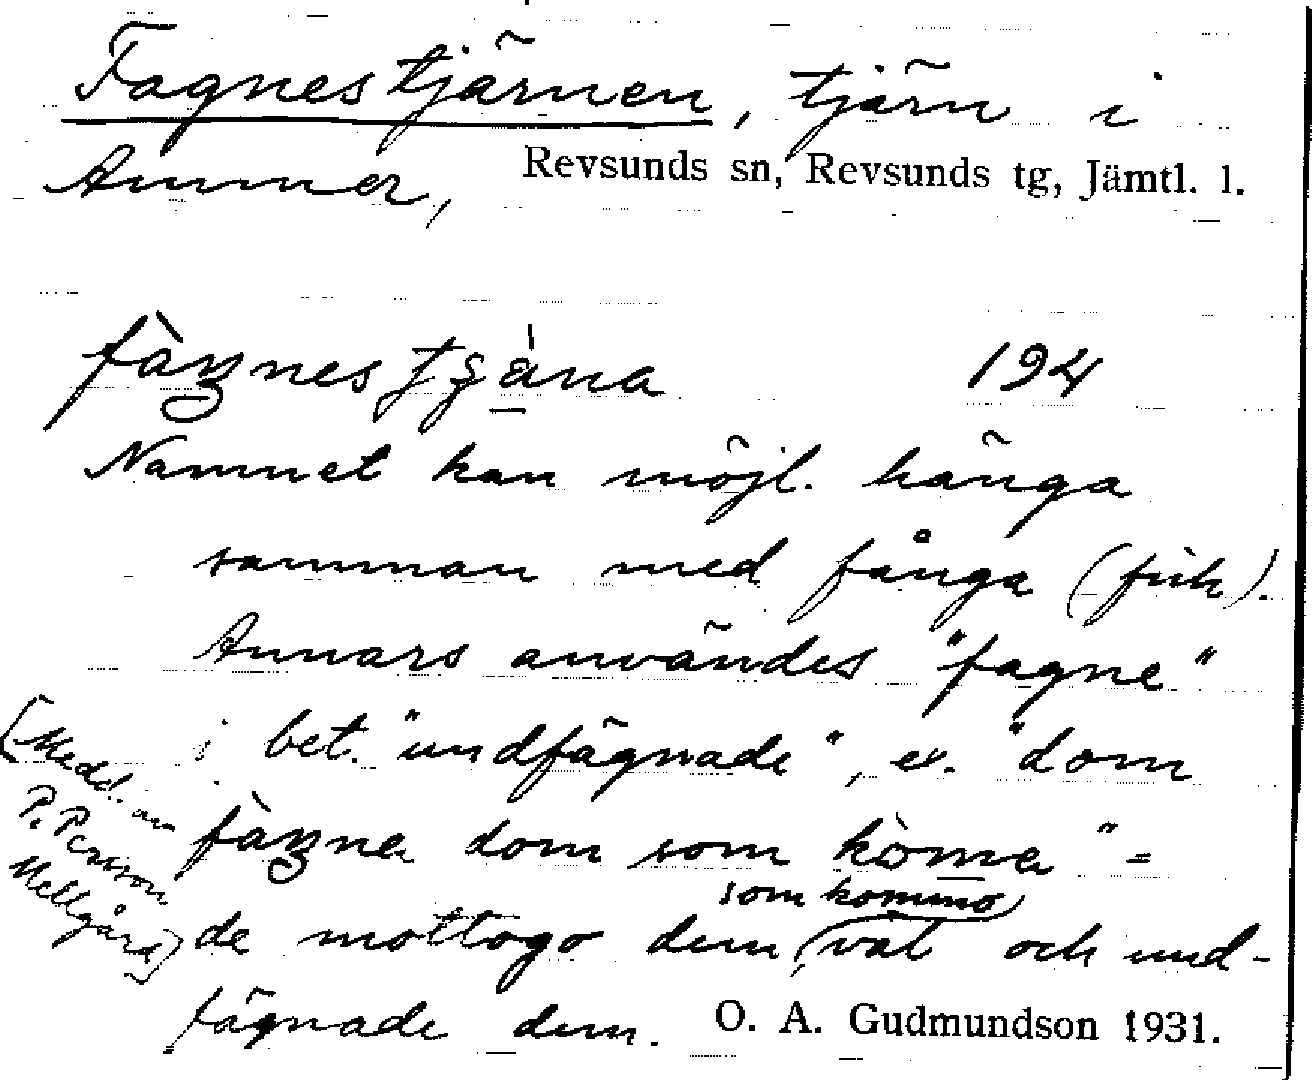 Fagnestjärnen, tjärn i
Ammer, Revsunds sn, Revsunds tg, Jämtl. l.
194
Namnet kan möjl. hänga
samman med fånga (fisk).
Annars användes "fagne"
i bet. "undfägnade", ex. "dom
fàŋna dom som kòma" =
de mottogo dem som kommo väl och und-
fägnade dem. O. A. Gudmundson 1931.
[Medd. av
P. Persson
Mellgård]